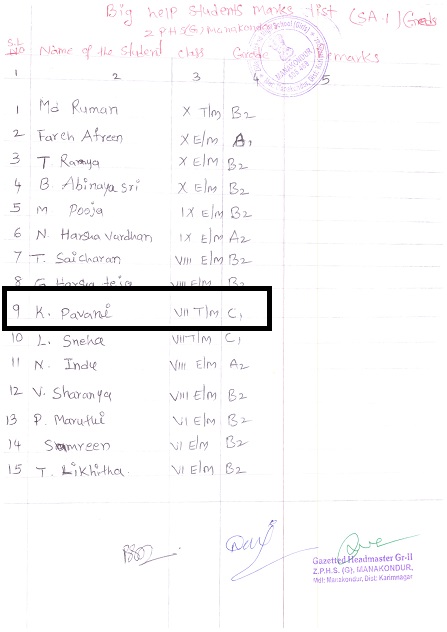 Big help students marks list (SA-1) Grads
Z P H S (G) Manakondur
S.L No Name of the Student class Grade marks
1 2 3 4 5
1 Md Ruman X T/m B2
2 Fareh Afreen X E/m A1
3 T. Ramya X E/m B2
4 B. Abinaya Sri X E/m B2
5 M Pooja IX E/m B2
6 N. Harsha Vardhan IX E/m A2
7 T. Saicharan VIII E/m B2
8 G. Harsha teja VIII E/m B2
9 K. Pavani VII T/m C1
10 L. Sneha VII T/m C1
11 N. Indu VIII E/m A2
12 V. Sharanya VIII E/m B2
13 P. Maruthi VI E/m B2
14 Samreen VI E/m B2
15 T. Likhitha. VI E/M B2
Gazetted Headmaster Gr-II
Z.P.H.S. (G). MANAKONDUR,
Mdl: Manakondur, Dist: Karimnagar